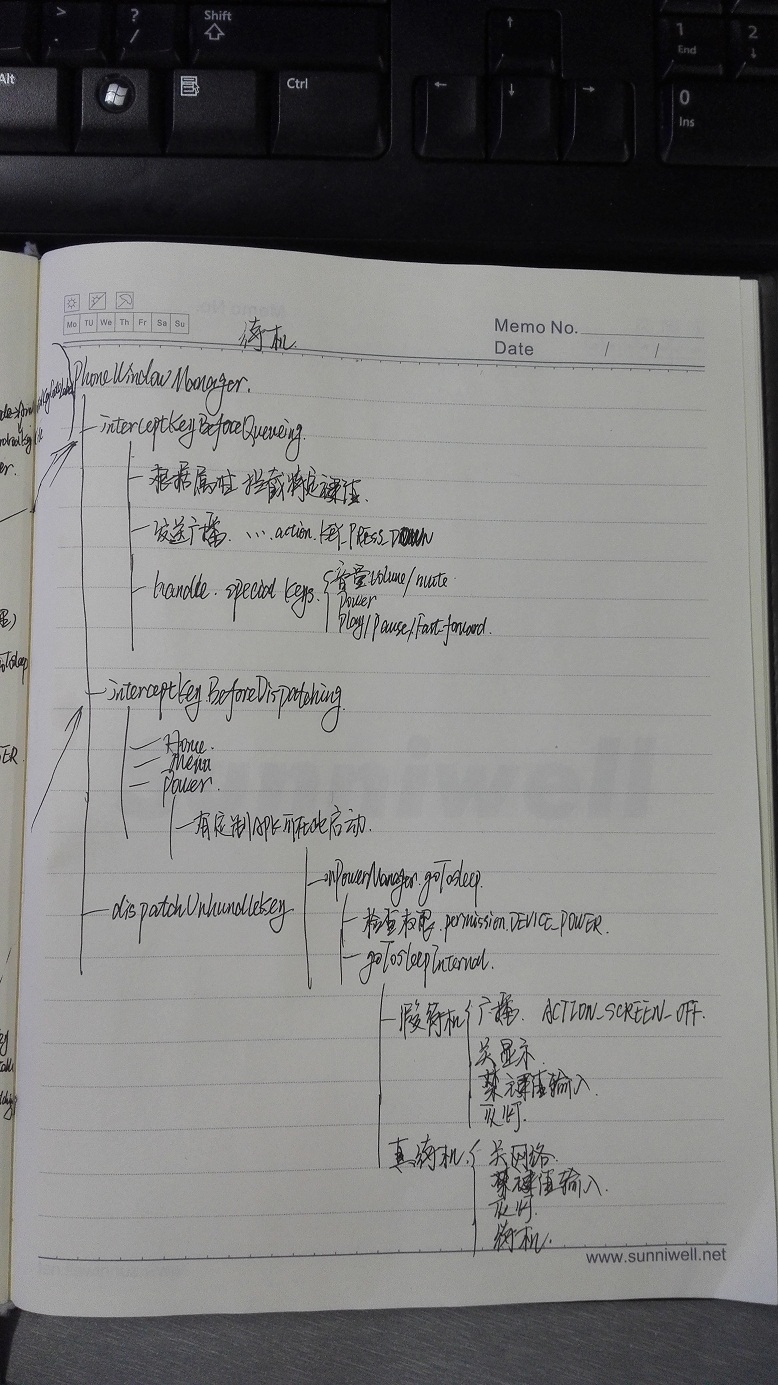 >
.
?
/
Shift
Alt
Ctrl
↑
←
↓
→
1
End
2
↓
0
Ins
Mo TU We Th Fr Sa Su
待机
Memo No.
Date / /
PhoneWindowManager.
interceptKeyBeforeQueueing.
根据属性 拦截特定键值.
发送广播. ... action. KEY_PRESS_DOWN
handle. special keys. 音量volume/mute
power
play/pause/Fast-forward.
interceptKey.BeforeDispatching.
Home.
menu
power.
有定制APK可在此启动.
mPowerManager.goTosleep.
dispatchUnhundlekey
检查权限. permission.DEVICE_POWER.
goToSleepInternal.
假待机 广播. ACTION_SCREEN_OFF.
关显示.
禁键值输入.
灭灯.
真待机. 关网络.
禁键值输入.
灭灯.
待机.
www.sunniwell.net